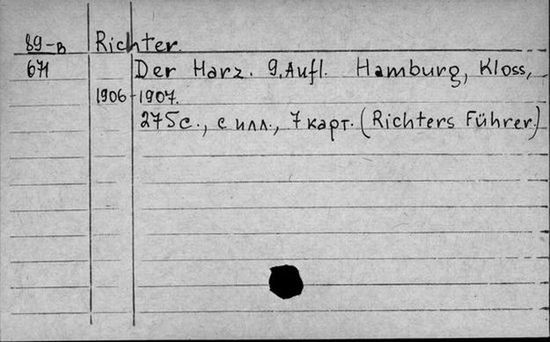 89-в Richter.
671 Der Harz. 9. Aufl. Hamburg, Kloss,
1906-1907.
275с., с илл., 7 карт. (Richters Führer)